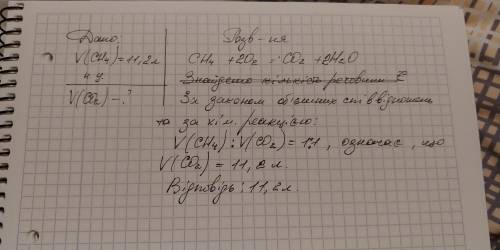 Дано:
V(CH₄)=11,2л
н.у.
V(CO₂) - ?
Розв-ня
CH₄ + 2O₂ = CO₂ + 2H₂O
Знайдемо кількість речовини
За законом об'ємних співвідношень
та за хім. реакцією:
V(CH₄) : V(CO₂) = 1:1, означає, що
V(CO₂) = 11,2 л.
Відповідь: 11,2л.